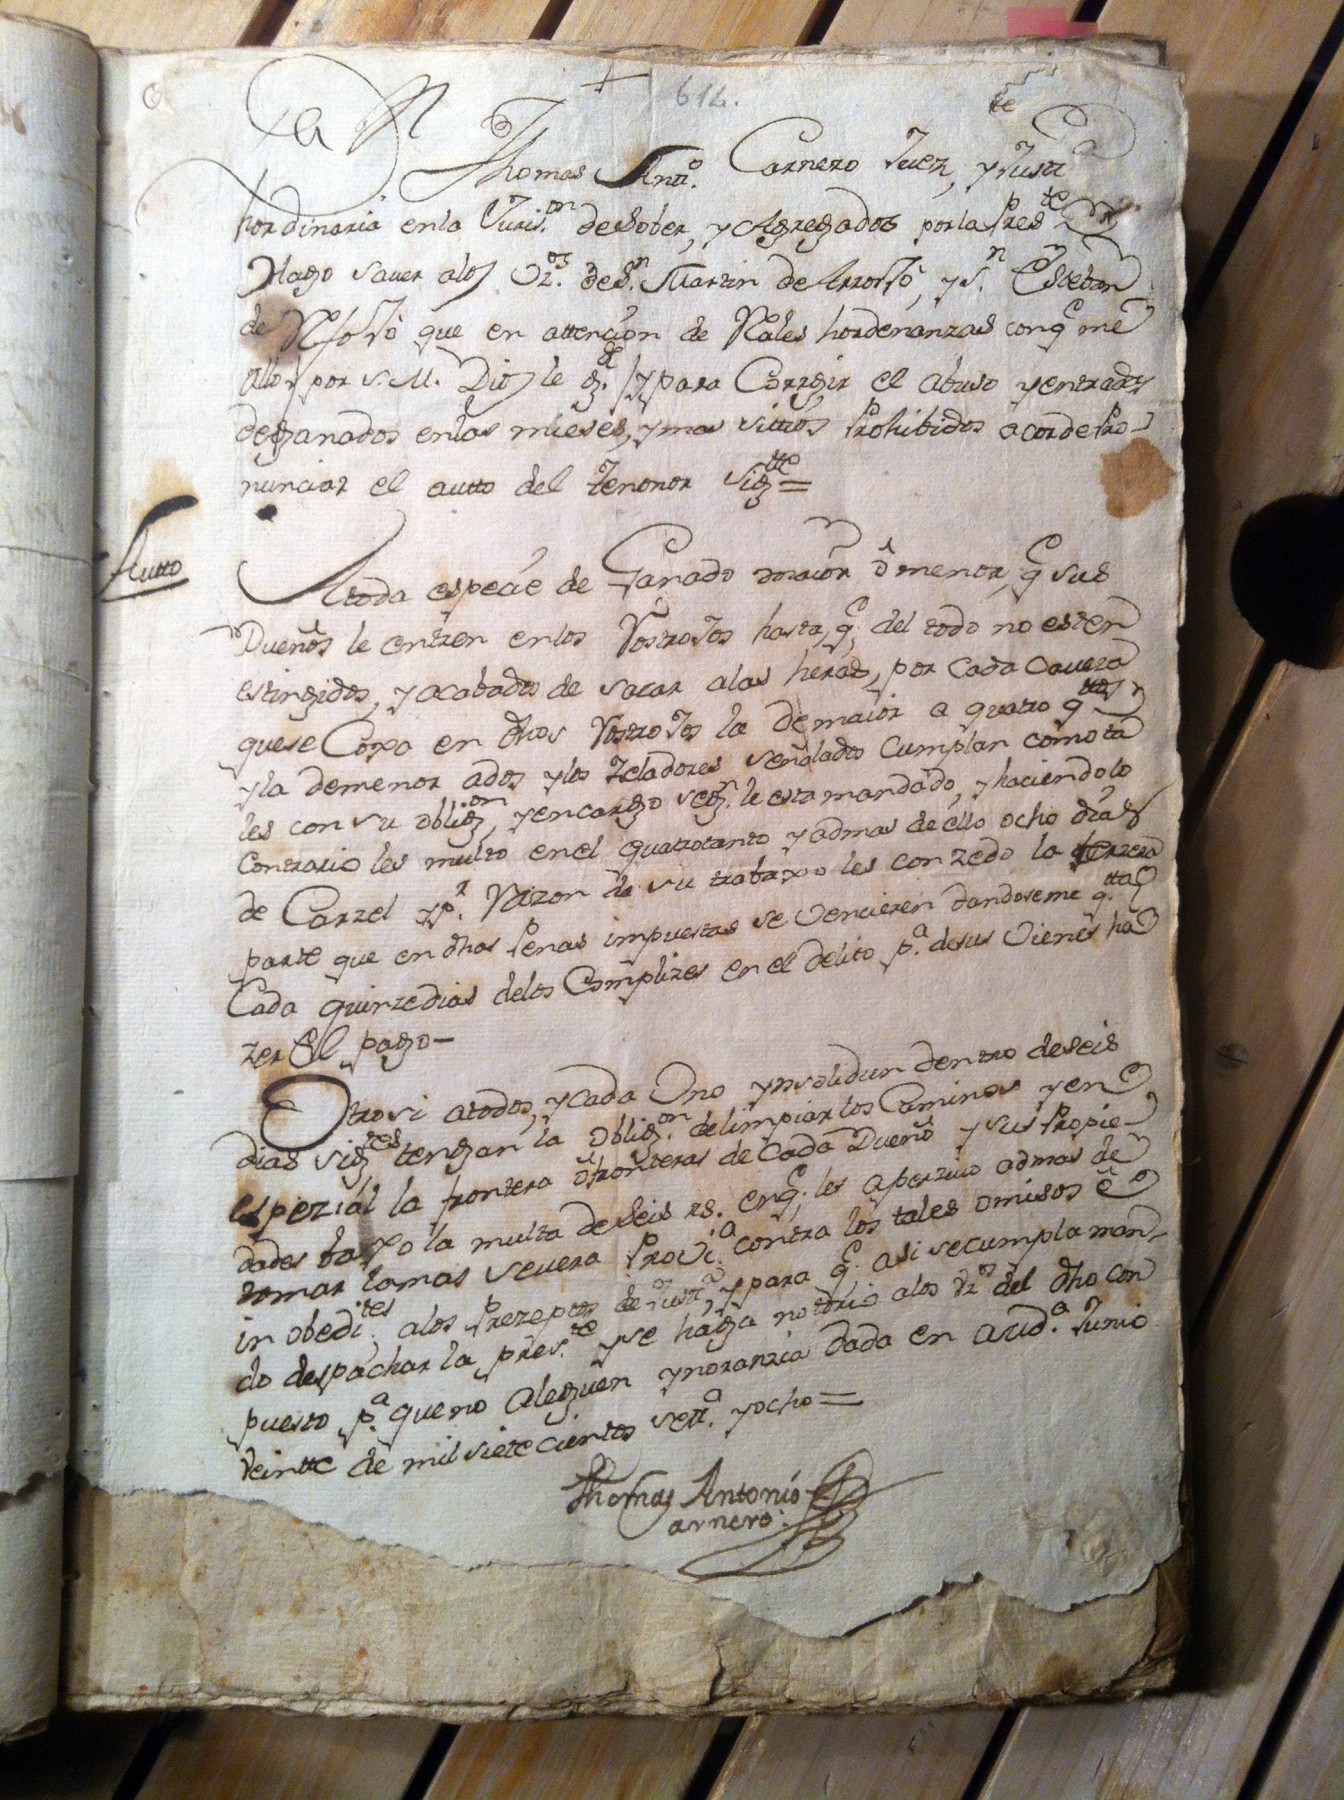 614.
Thomas Antt.º Carnero Juez, y Justt.ª
hordinaria en la Juris.on de Sober, y Agregados por la Pres.te
Hago saver a los Vz.os de S.n Martin de Arroxo, y S.n Esteban
de que en attencion de Rales hordenanzas con q.e me
allo, por S. M. Dios le g.de y para Corregir el abuso y entrada
de ganados en las mieses, y mas sittios Prohibidos acorde Pro-
nunciar el autto del tenonor sig.tte =
Autto
A toda especie de Ganado maior ô menor, q.e sus
Dueños le entren en los Rostroxos hasta, q.e del todo no esten
estingidos, y acabados de sacar a las heras, por cada caveza
que se Coxa en dhos Rostroxos la de maior a quatro q.ttos
y la de menor a dos y los zeladores señalados Cumplan como ta
les con su oblig.on, y encargo seg.n le esta mandado, y haciendo lo
Contrario les multo en el quatrotanto y admas de ello ocho dias
de Carzel y p.r Razon de su trabaxo les conzedo la terzera
parte que en dhas Penas impuestas se vencieren dandoseme q.tta
Cada quinze dias de los Complizes en el delito p.ª de sus vienes ha
zer el pago-
Otrosi a todos, y cada Uno ynsolidun dentro de seis
dias sig.tes tengan la oblig.on de limpiar los Caminos y en
espezial la frontera ô fronteras de Cada Dueño y sus Propie-
dades baxo la multa de seis rs. en q.e les aperzivo admas de
tomar la mas severa Provi.ª contra los tales omisos è
in obedi.tes a los Prezeptos de Justt.ª, y para q.e asi se cumpla man-
do despachar la pres.te y se haga notorio a los Vz.os del dho con
puesto p.ª que no aleguen ynoranzia dada en aud.ª Junio
veintte de mil siete cientos sett.ª y ocho =
Thomas Antonio
Carnero